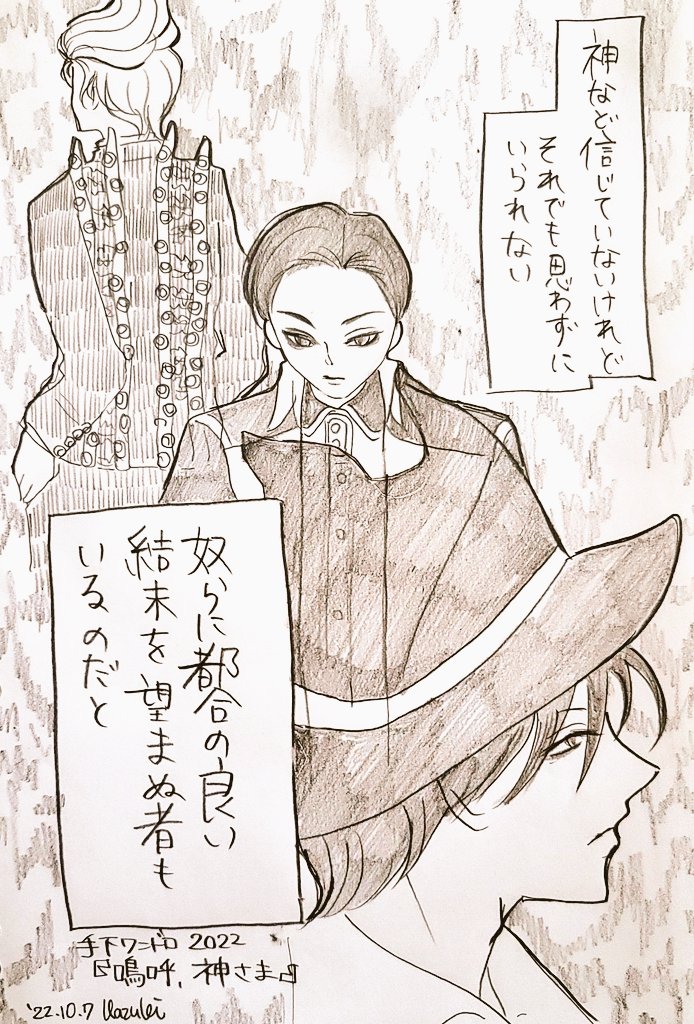 神など信じていないけれど
それでも思わずに
いられない
奴らに都合の良い
結末を望まぬ者も
いるのだと
手下ワンドロ 2022
『嗚呼、神さま』
'22.10.7